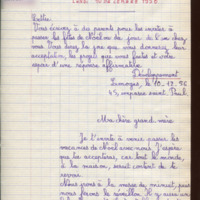 Lettre
Vous écrivez à des parents pour les inviter à
passer les fêtes de Noël ou du jour de l'an chez
vous. Vous direz la joie que vous donnerait leur
acceptation, les projets que vous faites et votre
espoir d'une réponse affirmative.
Développement
Limoges, le 10.12.56
45, impasse saint Paul.
Ma chère grand-mère
Je t'invite à venir passer les
vacances de Noël avec nous. J'espère
que tu accepteras, car tout le monde,
à la maison, serait content de te
Nous irons à la messe de minuit, puis
nous ferons le réveillon. Il y aura une